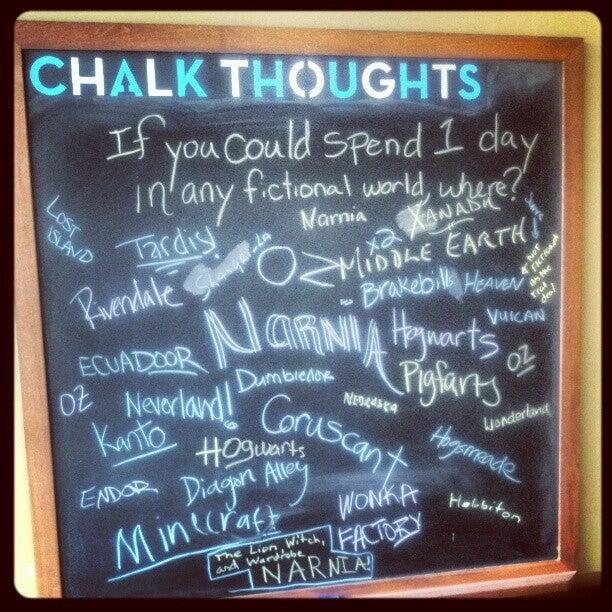 CHALK THOUGHTS
If you could spend 1 day
in any fictional world, where?
Narnia
XANADU
LOST
ISLAND
Tardis
Shangri-La
OZ
x2
MIDDLE EARTH
Rivendale
Brakebills
HEAVEN
VULCAN
NARNIA
Hogwarts
ECUADOOR
Pigfarts
OZ
OZ
Neverland!
Dumbledor
NEBRASKA
Wonderland
Kanto
HOgwarts
Coruscant
Hogsmeade
ENDOR
Diagon Alley
WONKA
FACTORY
Hobbiton
Minecraft
The Lion, Witch,
and Wardrobe
NARNIA!